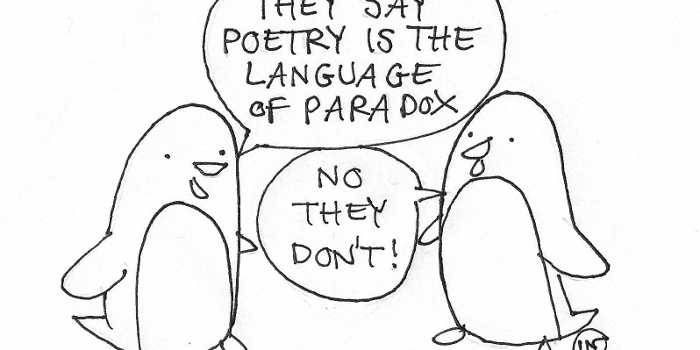 THEY SAY
POETRY IS THE
LANGUAGE
OF PARADOX
NO
THEY
DON'T!